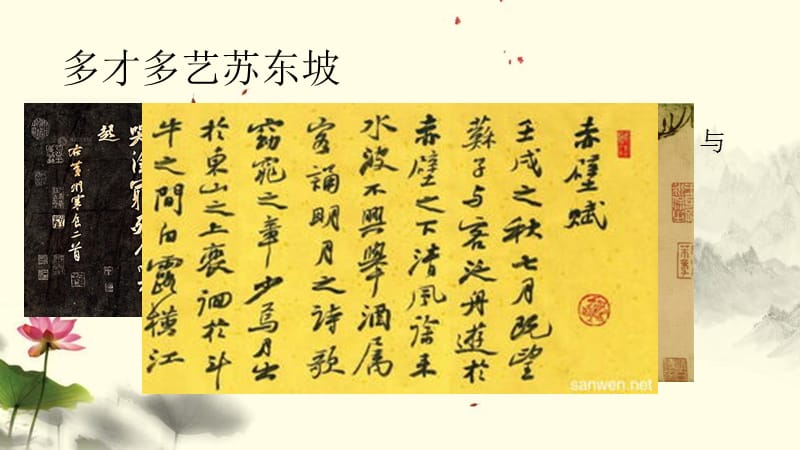 多才多艺苏东坡
与
赤壁賦
壬戌之秋七月既望
蘇子与客泛舟遊於
赤壁之下清風徐来
水波不興舉酒属
客誦明月之诗歌
窈窕之章少焉月出
於東山之上裵徊於斗
牛之間白露横江
起
右黄州寒食二首
sanwen.net